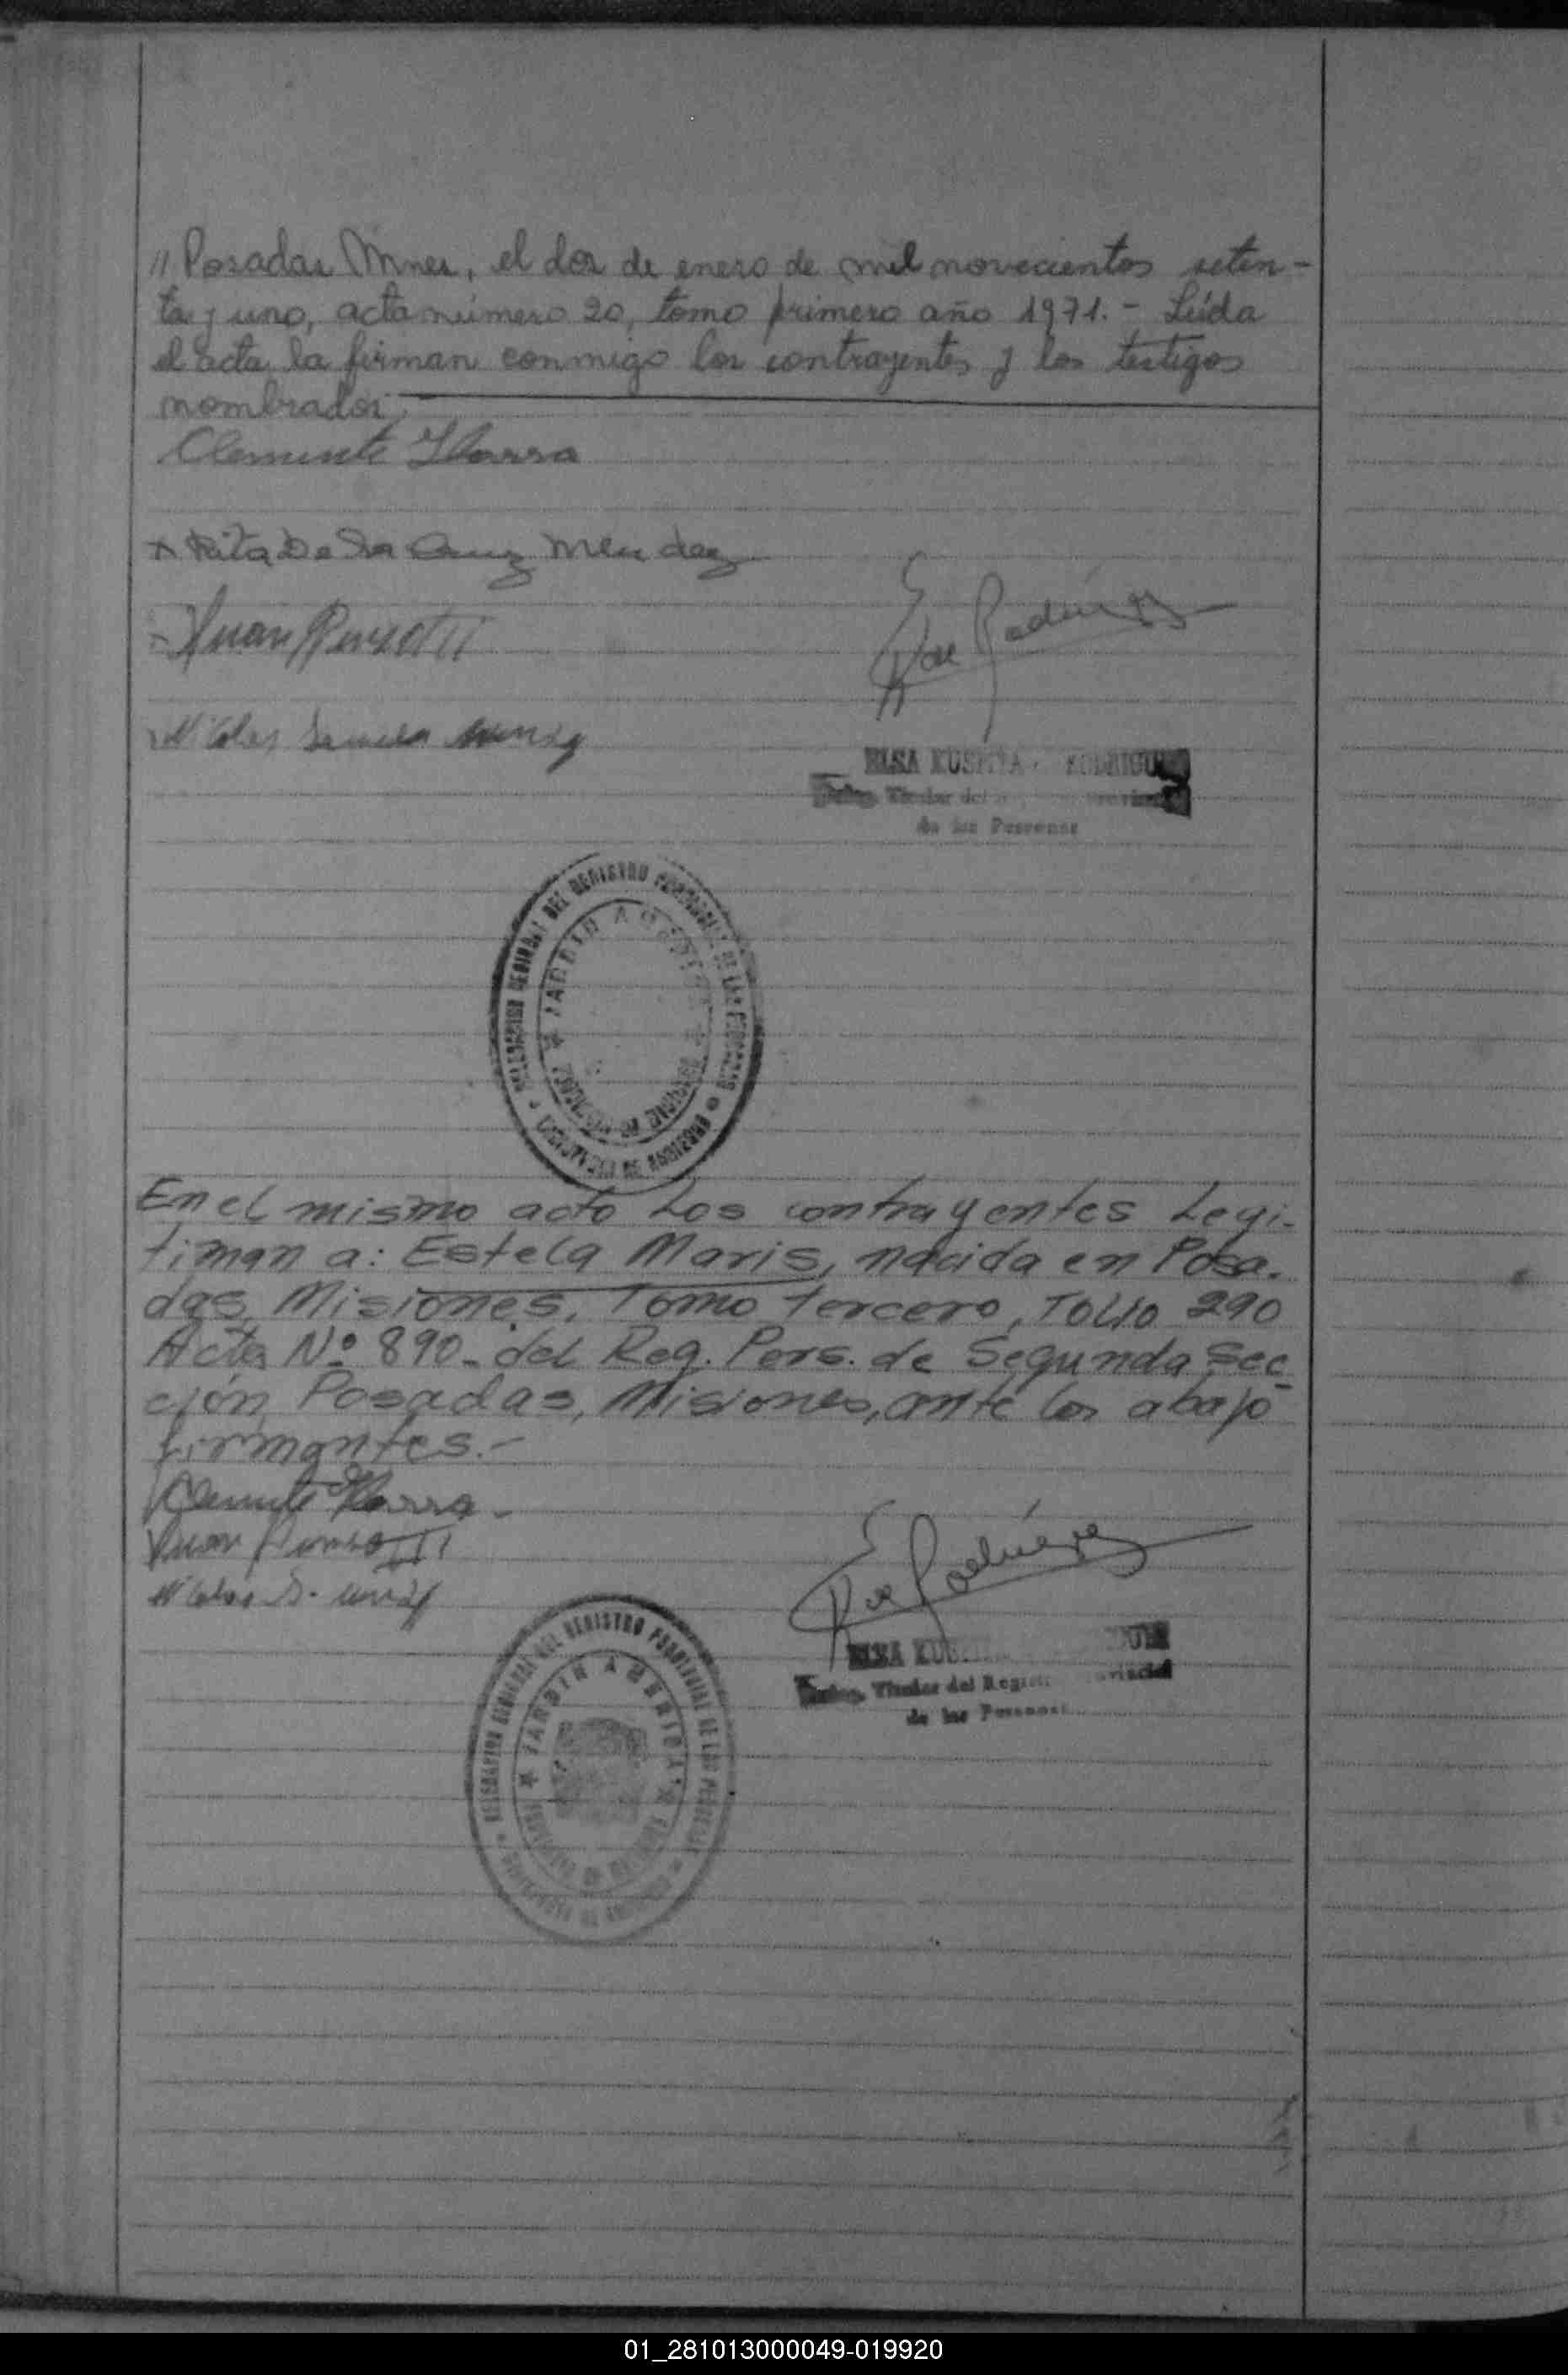 // Posadas Mnes, el dos de enero de mil novecientos seten-
ta y uno, acta número 20, tomo primero año 1971.- Leída
el acta la firman conmigo los contrayentes y los testigos
nombrados.
Clemente Ybarra
Rita De la Cruz Mendez
Juan
Nicolas
ELSA
Titular del
de las Personas
DEL REGISTRO PROVINCIAL DE LAS PERSONAS
JARDIN AMERICA
PROVINCIA DE MISIONES
En el mismo acto Los contrayentes Legi-
timan a: Estela Maris, nacida en Posa-
das, Misiones, Tomo tercero, Folio 290
Acta Nº 890- del Reg. Pers. de Segunda Sec
ción Posadas, Misiones, ante los abajo
firmantes.-
Clemente Ybarra
Juan
Nicolas S.
ELSA
Titular del Registro Provincial
de las Personas
DEL REGISTRO PROVINCIAL DE LAS PERSONAS
JARDIN AMERICA
01_281013000049-019920